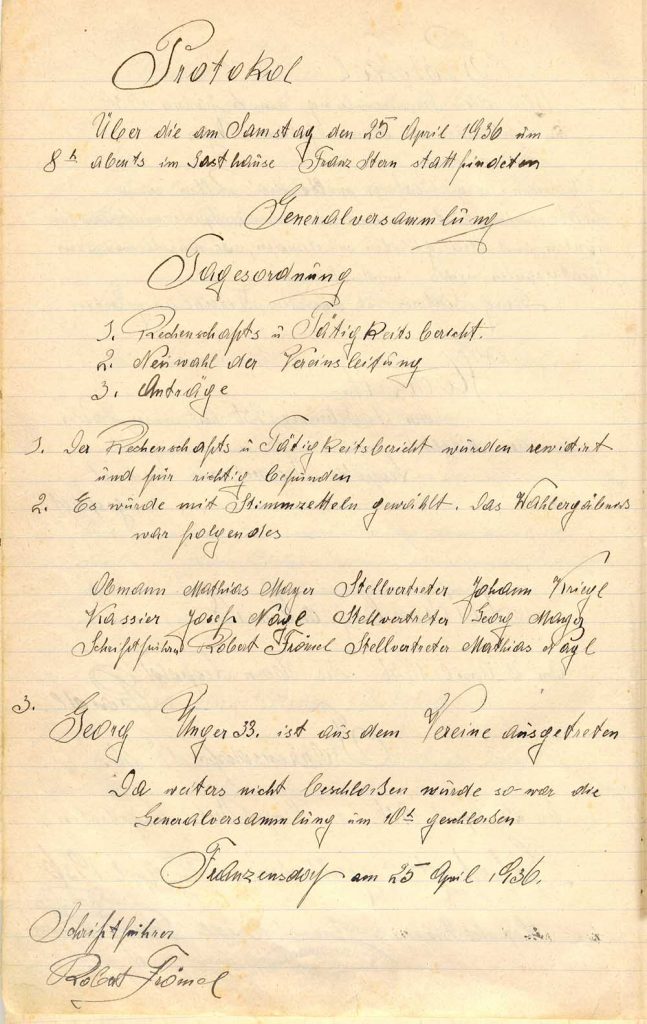 Protokol
Über die am Samstag den 25 April 1936 um
8h abents im Gasthause Franz Stern stattfindeten
Generalversammlung
Tagesordnung
1. Rechenschafts u Tätigkeitsbericht.
2. Neuwahl der Vereinsleitung
3. Anträge
1. Der Rechenschafts u Tätigkeitsbericht wurden rewidirt
und für richtig befunden
2. Es wurde mit Stimmzetteln gewählt. Das Wahlergäbnis
war folgendes
Obmann Mathias Mayer Stellvertreter Johann Kriegl
Kassier Josef Nagl Stellvertreter Georg Mayer
Schriftführer Robert Frömel Stellvertreter Mathias Nagl
3.
Georg Unger 33. ist aus dem Vereine ausgetreten
Da weiters nicht beschloßen wurde so war die
Generalversammlung um 10h geschloßen
Franzensdorf am 25 April 1936.
Schriftführer
Robert Frömel